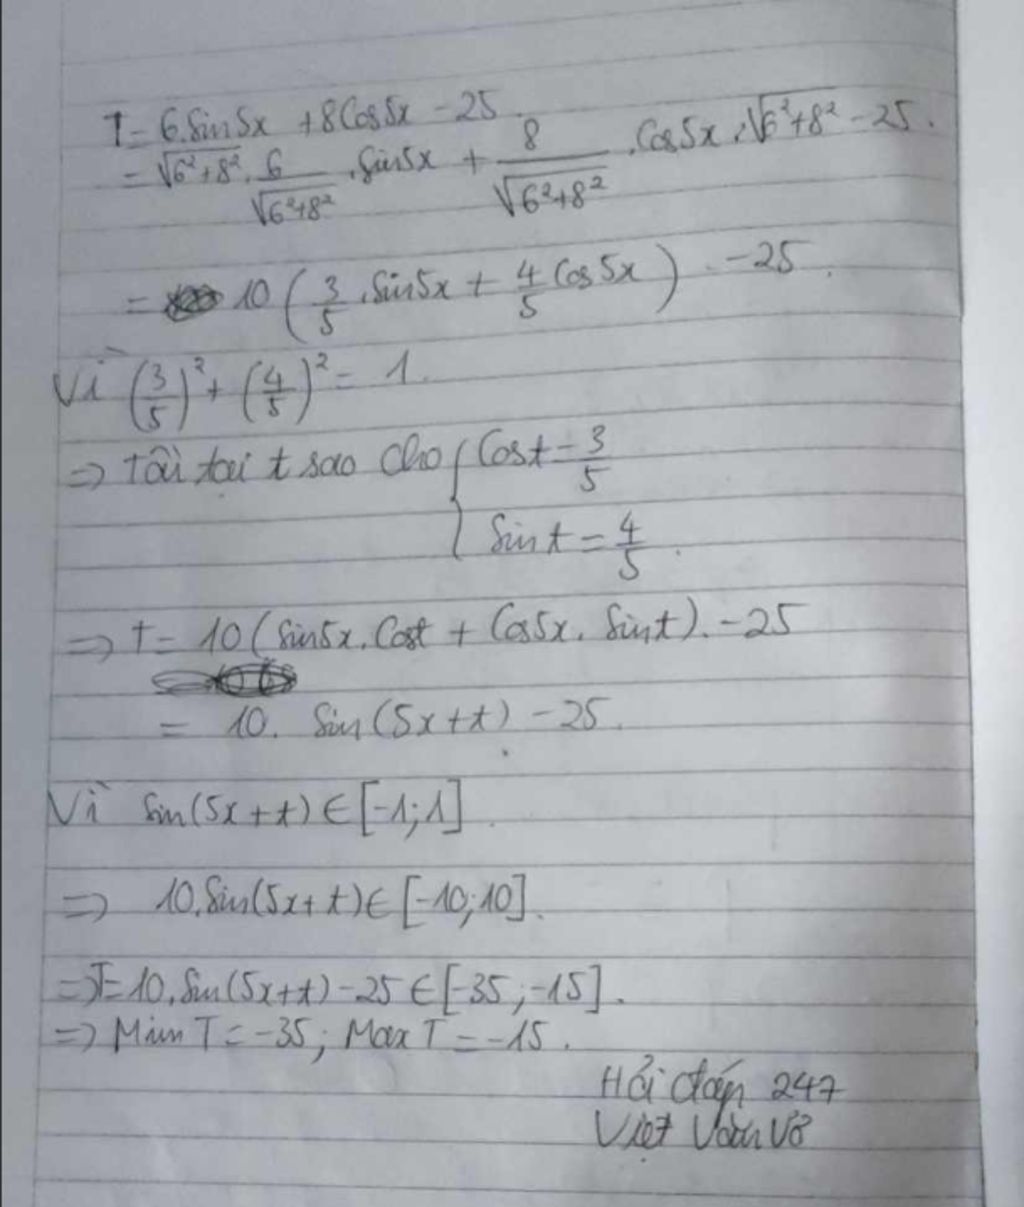 T = 6.Sin5x + 8Cos5x - 25
= √6²+8² . 6/√6²+8² . Sin5x + 8/√6²+8² . Cos5x . √6²+8² - 25.
= 10 (3/5 . Sin5x + 4/5 Cos5x) - 25.
Vì (3/5)² + (4/5)² = 1.
=> tồn tại t sao cho { Cost = 3/5
Sint = 4/5.
=> T = 10 (Sin5x. Cost + Cos5x. Sint). - 25
= 10. Sin(5x+t) - 25.
Vì Sin(5x+t) ∈ [-1; 1].
=> 10.Sin(5x+t) ∈ [-10; 10].
=> T = 10.Sin(5x+t) - 25 ∈ [-35; -15].
=> Min T = -35; Max T = -15.
Hỏi đáp 247
Việt Văn Võ